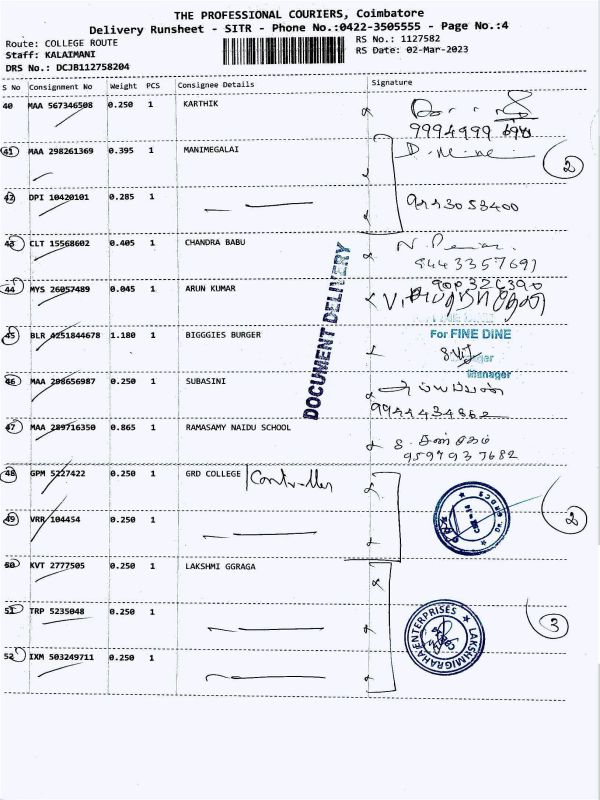 THE PROFESSIONAL COURIERS, Coimbatore
Delivery Runsheet - SITR - Phone No.:0422-3505555 - Page No.:4
Route: COLLEGE ROUTE
RS No.: 1127582
Staff: KALAIMANI
RS Date: 02-Mar-2023
DRS No.: DCJB112758204
S No Consignment No Weight PCS Consignee Details Signature
40 MAA 567346508 0.250 1 KARTHIK
9994999
41 MAA 298261369 0.395 1 MANIMEGALAI
2
42 DPI 10420101 0.285 1
9443053400
43 CLT 15568602 0.405 1 CHANDRA BABU
9443357691
44 MYS 26057489 0.045 1 ARUN KUMAR
DOCUMENT DELIVERY
45 BLR 4251844678 1.180 1 BIGGGIES BURGER
For FINE DINE
Manager
46 MAA 298656987 0.250 1 SUBASINI
9944434862
47 MAA 289716350 0.865 1 RAMASAMY NAIDU SCHOOL
9597937682
48 GPM 5227422 0.250 1 GRD COLLEGE Controller
2
49 VRR 104454 0.250 1
50 KVT 2777505 0.250 1 LAKSHMI GGRAGA
51 TRP 5235048 0.250 1
3
LAKSHMIGRAHA ENTERPRISES
52 IXM 503249711 0.250 1